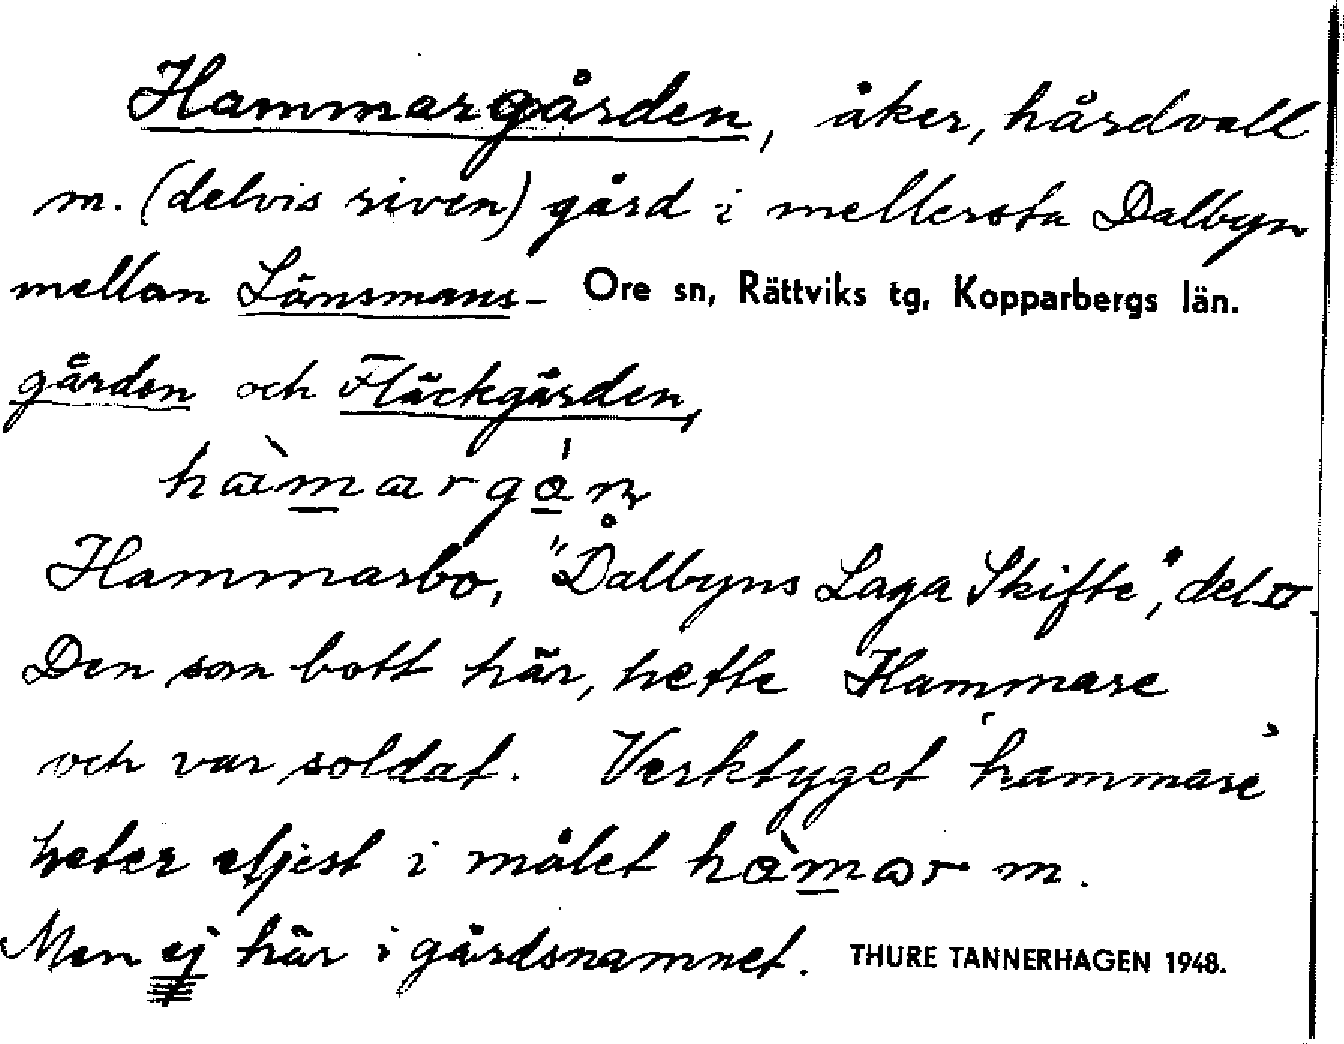 Hammargården, åker, hårdvall
m. (delvis riven) gård i mellersta Dalbyn
mellan Länsmans- Ore sn, Rättviks tg, Kopparbergs län.
gården och Fläckgården,
Hammarbo, "Dalbyns Laga Skifte", del II.
Den som bott här, hette Hammare
och var soldat. Verktyget 'hammare'
heter eljest i målet m.
Men ej här i gårdsnamnet. THURE TANNERHAGEN 1948.